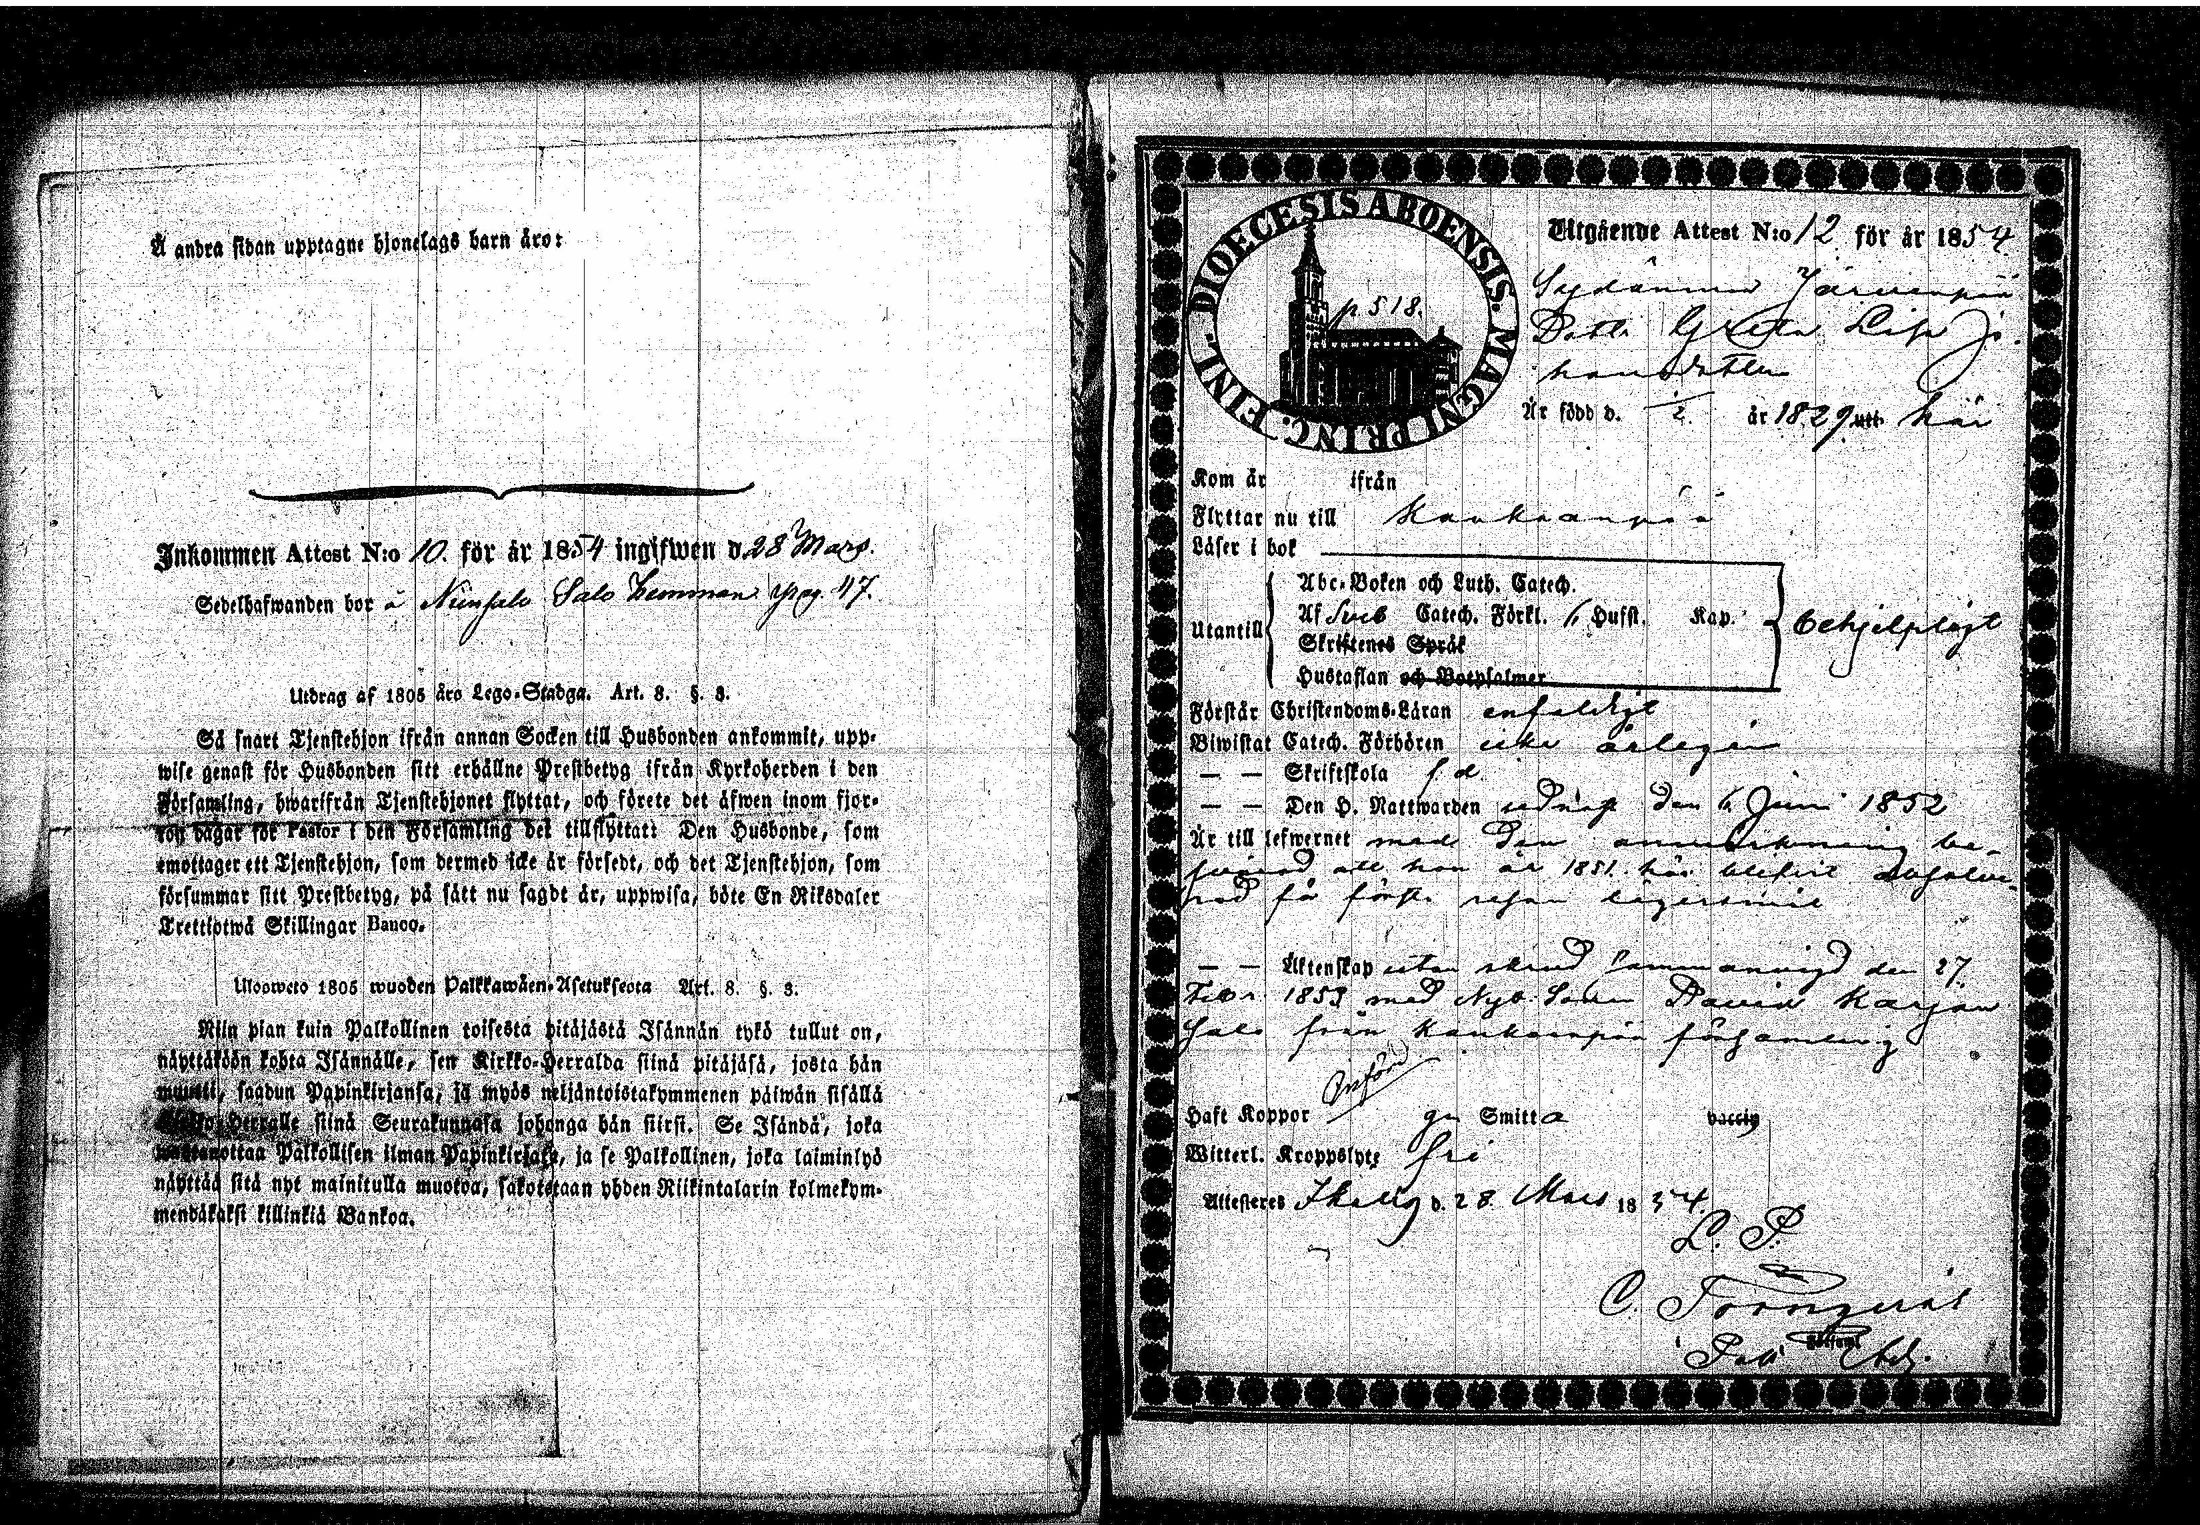 Å andra sidan upptagne hjonelags barn äro:
Inkommen Attest N:o 10. för år 1854 ingifwen d. 28 Mars.
Sedelhafwanden bor å Niinsalo Salo Hemman pag. 47.
Utdrag af 1805 åro Lego-Stadga. Art. 8. §. 3.
Så snart Tjenstehjon ifrån annan Socken till Husbonden ankommit, upp-
wise genast för Husbonden sitt erhållne Prestbetyg ifrån Kyrkoherden i den
Församling, hwarifrån Tjenstehjonet flyttat, och förete det äfwen inom fjor-
ton dagar för Pastor i den Församling det tillflyttat: Den Husbonde, som
emottager ett Tjenstehjon, som dermed icke är försedt, och det Tjenstehjon, som
försummar sitt Prestbetyg, på sätt nu sagdt är, uppwisa, böte En Riksdaler
Trettiotwå Skillingar Banco.
Ulosweto 1805 wuoden Palkkawäen-Asetuksesta Art. 8. §. 3.
Niin pian kuin Palkollinen toisesta pitäjästä Isännän tykö tullut on,
näyttäköön kohta Isännälle, sen Kirkko-Herralda siinä pitäjäsä, josta hän
muutti, saadun Papinkirjansa, ja myös neljäntoistakymmenen päiwän sisällä
Kirkko-Herralle siinä Seurakunnasa johonga hän siirsi. Se Isändä, joka
wastanottaa Palkollisen ilman Papinkirjata, ja se Palkollinen, joka laiminlyö
näyttää sitä nyt mainitulla muotoa, sakotetaan yhden Riikintalarin kolmekym-
mendäkaksi killinkiä Bankoa.
DIOECESIS ABOENSIS. MAGNI PRINC. FINL.
p. 518.
Utgående Attest N:o 12 för år 1854
Sydänmaa Järvenpää
Dott. Greta Lisa Jo-
hansdotter
Är född d. år 1829 uti här
Kom år ifrån
Flyttar nu till Kankaanpää
Läser i bok
Utantill
Abc-Boken och Luth. Catech.
Af Sveb Catech. Förkl. Hufst. Kap.
Skriftenes Språk
Hustaflan och Botpsalmer
behjelpligt
Förstår Christendoms-Läran enfaldigt
Biwistat Catech. Förhören icke årligen
— — Skriftskola f. d.
— — Den H. Nattwarden sednast den 6 Juni 1852
Är till lefwernet med den anmärkning be-
frejad att hon år 1851 här blifvit absolve-
rad för första resan lägersmål
— — Äktenskap utan skrud sammanvigd den 27
Febr. 1853 med Nyb. Sonen David Karjan
salo från Kankaanpää församling
Införd
Haft Koppor gn Smitta vaccin
Witterl. Kroppslyte fri
Attesteras Ikalis d. 28. Mars 1854.
L. S.
C. Tornqvist
Past. Adj.